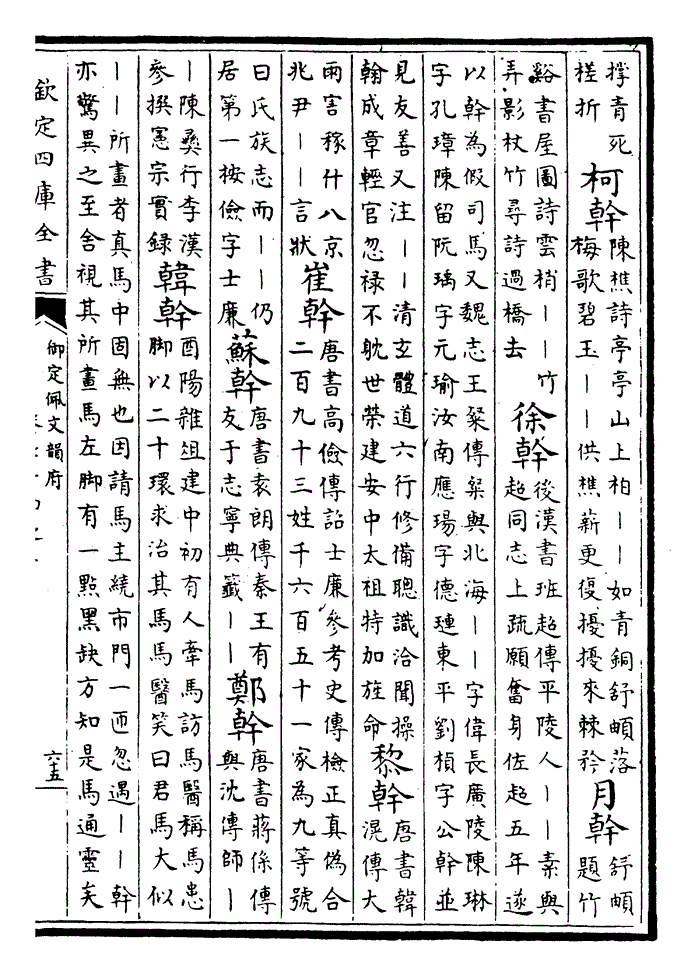 撑青死
槎折
柯幹
陳樵詩亭亭山上柏丨丨如青銅舒頔落
梅歌碧玉丨丨供樵薪更復擾擾來棘矜
月幹
舒頔
題竹
谿書屋圖詩雲梢丨丨竹
弄影杖竹尋詩過橋去
徐幹
後漢書班超傳平陵人丨丨素與
超同志上疏願奮身佐超五年遂
以幹為假司馬又魏志王粲傳粲與北海丨丨字偉長廣陵陳琳
字孔璋陳留阮瑀字元瑜汝南應瑒字德璉東平劉楨字公幹並
見友善又注丨丨清玄體道六行修備聰識洽聞操
翰成章輕官忽禄不躭世榮建安中太祖特加旌命
黎幹
唐書韓
滉傳大
雨害稼什八京
兆尹丨丨言狀
崔幹
唐書高儉傳詔士廉參考史傳檢正真偽合
二百九十三姓千六百五十一家為九等號
曰氏族志而丨丨仍
居第一按儉字士廉
蘇幹
唐書袁朗傳秦王有
友于志寧典籤丨丨
鄭幹
唐書蔣係傳
與沈傳師丨
丨陳彞行李漢
參撰憲宗實録
韓幹
酉陽雜俎建中初有人牽馬訪馬醫稱馬患
脚以二十環求治其馬馬醫笑曰君馬大似
丨丨所畫者真馬中固無也因請馬主繞市門一匝忽遇丨丨幹
亦驚異之至舍視其所畫馬左脚有一點黑缺方知是馬通靈矣
欽定四庫全書
御定佩文韻府
六五